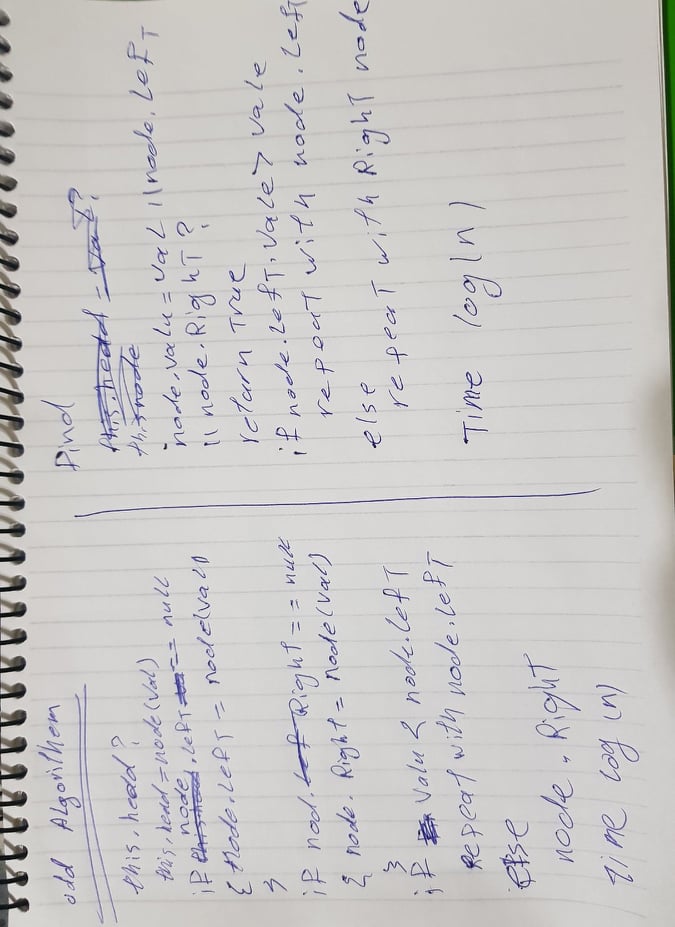 add Algorithem
this.hedd?
this.hedd=node(val)
if node.left == null
{ node.left = node(val)
}
if nod. Right == null
{ node.Right = node(val)
}
if Valu < node.left
repeat with node.left
else
node.Right
time log(n)
find
this.hedd = val?
this node
node.valu = val || node.left
|| node.Right?
return True
if node.left.vale > vale
repeat with node.left
else
repeat with Right node
Time log(n)